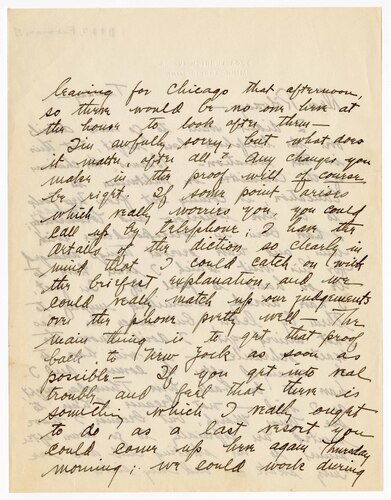 leaving for Chicago that afternoon,
so there would be no one here at
the house to look after them—
I'm awfully sorry, but what does
it matter, after all? Any changes you
make in the proof will of course
be right. If some point arises
which really worries you, you could
call up by telephone; I have the
details of the diction so clearly in
mind that I could catch on with
the briefest explanation, and we
could really match up our judgements
over the phone pretty well— The
main thing is to get that proof
back to New York as soon as
possible— If you get into real
trouble and feel that there is
something which I really ought
to do, as a last resort you
could come up here again Thursday
morning; we could work during